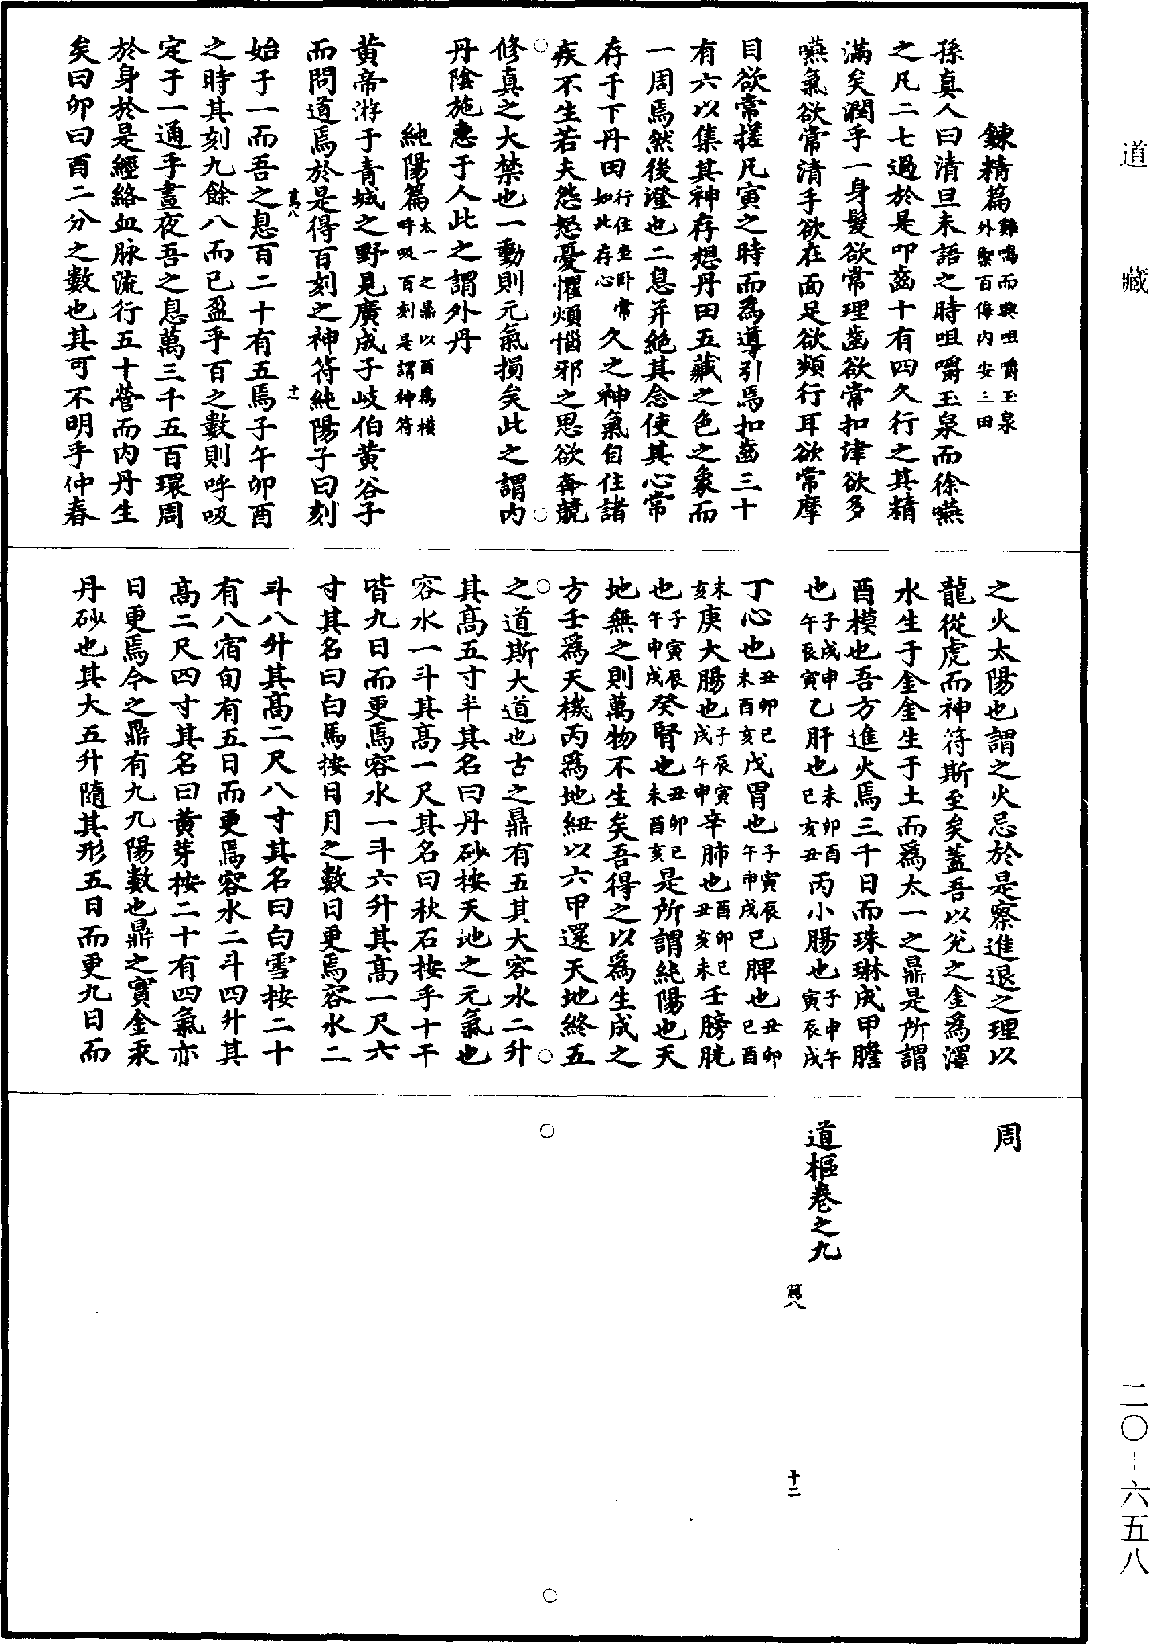 道藏
鍊精篇雞鳴而興咀嚼玉泉外禦百傷内安三田
孫真人曰清旦未語之時咀嚼玉泉而徐嚥
之凡二七過於是叩齒十有四久行之其精
滿矣潤乎一身髮欲常理齒欲常扣津欲多
嚥氣欲常清手欲在面足欲頻行耳欲常摩
目欲常搓凡寅之時而為導引焉扣齒三十
有六以集其神存想丹田五藏之色之象而
一周焉然後澄也二息并絶其念使其心常
存于下丹田行住坐卧常如此存心久之神氣自住諸
疾不生若夫怨怒憂懼煩惱邪之思欲奔競
修真之大禁也一動則元氣損矣此之謂内
丹陰施惠于人此之謂外丹
純陽篇太一之鼎以酉為模呼吸百刻是謂神符
黄帝游于青城之野見廣成子岐伯黄谷子
而問道焉於是得百刻之神符純陽子曰刻
篤八 十一
始于一而吾之息百二十有五焉子午卯酉
之時其刻九餘八而已盈乎百之數則呼吸
定于一通乎晝夜吾之息萬三千五百環周
於身於是經絡血脉流行五十營而内丹生
矣曰卯曰酉二分之數也其可不明乎仲春
之火太陽也謂之火忌於是察進退之理以
龍從虎而神符斯至矣蓋吾以兊之金為澤
水生于金金生于土而為太一之鼎是所謂
酉模也吾方進火焉三千日而珠琳成甲膽
也子戌申午辰寅乙肝也未卯酉巳亥丑丙小腸也子申午寅辰戌
丁心也丑卯巳未酉亥戊胃也子寅辰午申戌己脾也丑卯巳酉
未亥庚大腸也子辰寅戌午申辛肺也酉卯巳丑亥未壬膀胱
也子寅辰午申戌癸腎也丑卯巳未酉亥是所謂純陽也天
地無之則萬物不生矣吾得之以為生成之
方壬為天機丙為地紐以六甲還天地終五
之道斯大道也古之鼎有五其大容水二升
其髙五寸半其名曰丹砂按天地之元氣也
容水一斗其髙一尺其名曰秋石按乎十干
皆九日而更焉容水一斗六升其髙一尺六
寸其名曰白馬按日月之數日更焉容水二
斗八升其髙二尺八寸其名曰白雪按二十
有八宿旬有五日而更焉容水二斗四升其
髙二尺四寸其名曰黄芽按二十有四氣亦
日更焉今之鼎有九九陽數也鼎之寳金汞
丹砂也其大五升隨其形五日而更九日而
周
道樞卷之九
篤八 十二
二〇-六五八